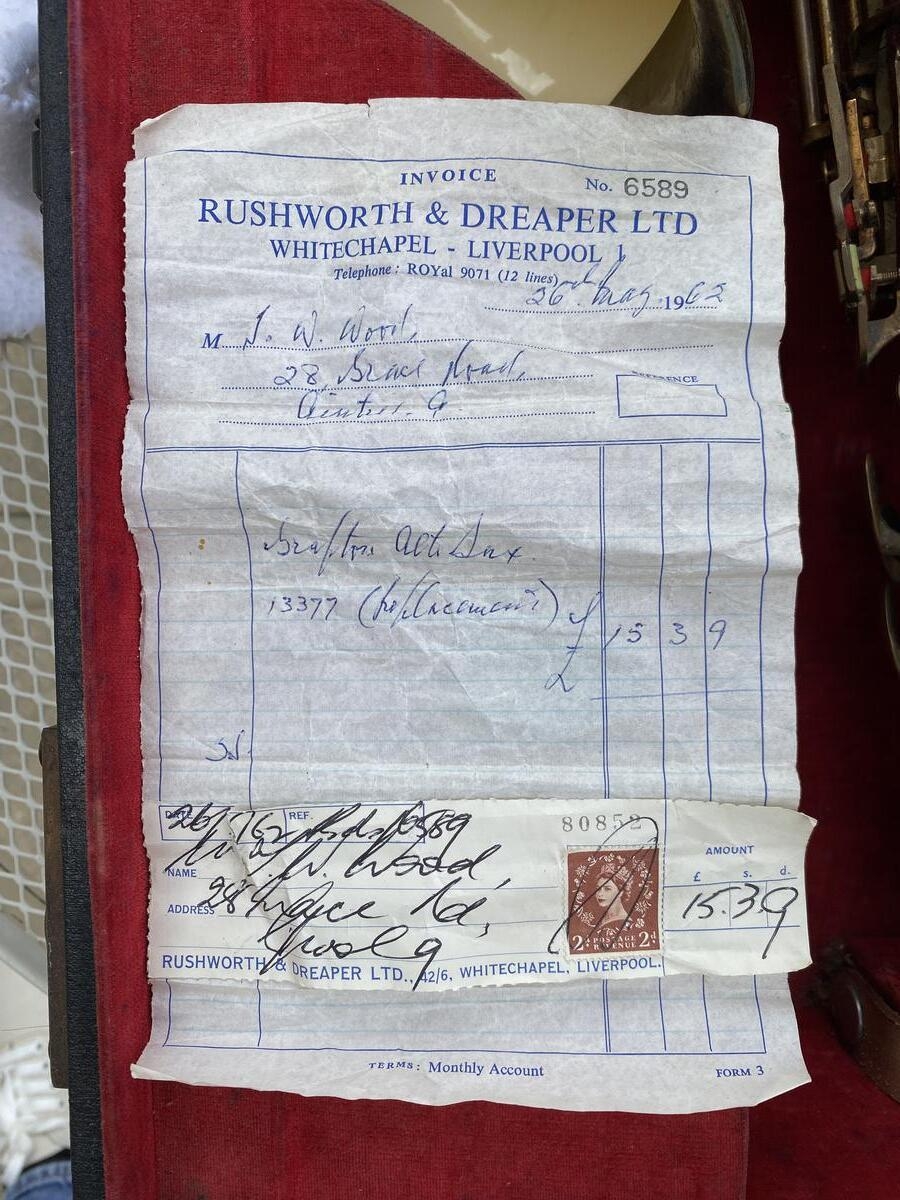 INVOICE
No. 6589
RUSHWORTH & DREAPER LTD
WHITECHAPEL - LIVERPOOL 1
Telephone: ROYal 9071 (12 lines)
26th May 1962
M J. W. Wood,
28, Road,
Aintree. 9.
REFERENCE
Grafton Alto Sax.
13377 (Replacement) £ 15 3 9
£
DATE 26/ /62 REF. 6589
80852
NAME W. Wood,
ADDRESS 28 Rd,
Lpool 9
AMOUNT
£ s. d.
15.3.9
2d POSTAGE REVENUE 2d
RUSHWORTH & DREAPER LTD., 42/6, WHITECHAPEL, LIVERPOOL.
TERMS: Monthly Account
FORM 3